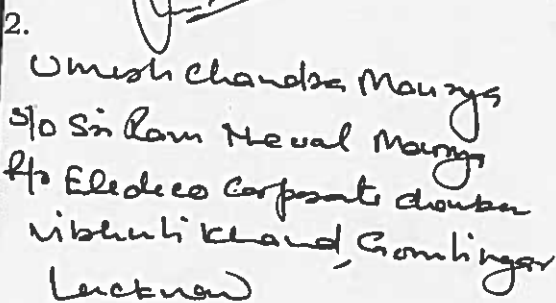 2.
Umesh Chandra Maurya
S/o Sri Ram Newal Maurya
R/o Eledeco Corporate Chamber
Vibhuti Khand, Gomtinagar
Lucknow